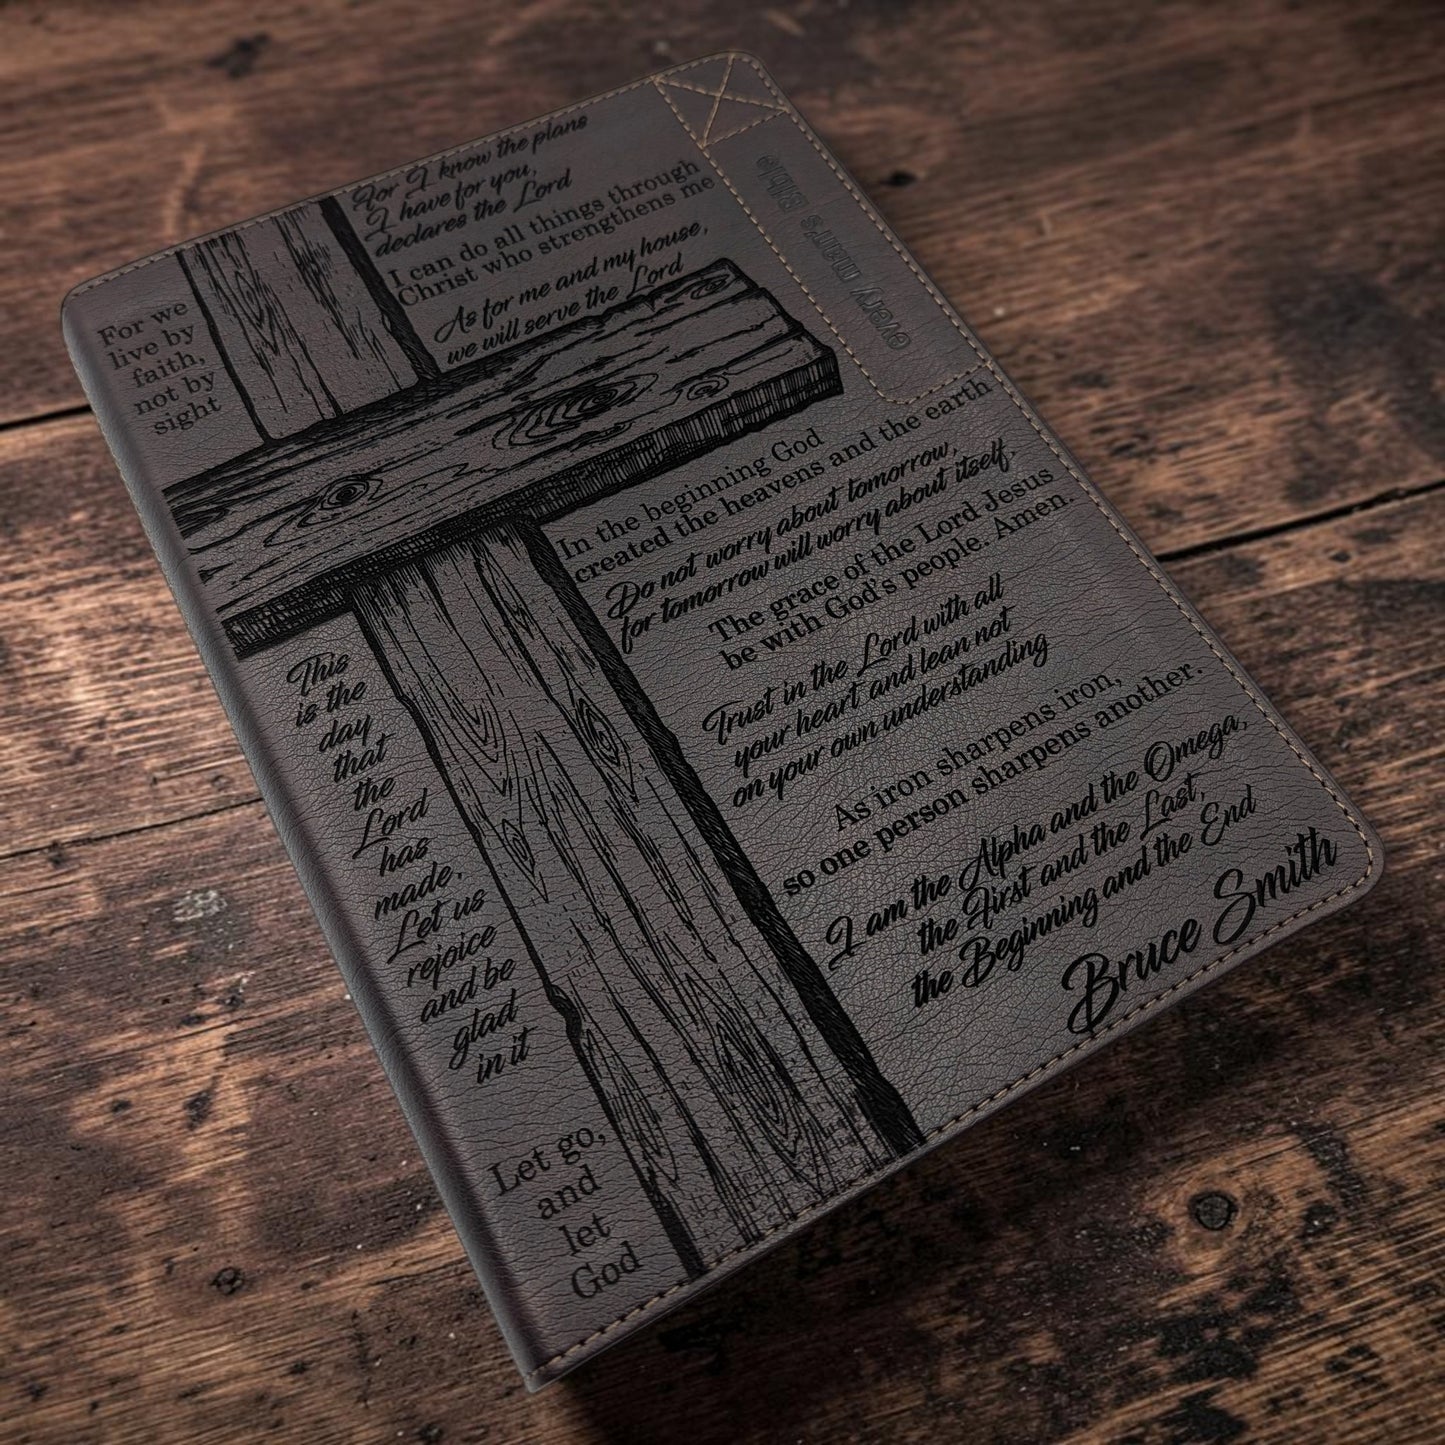 For I know the plans
I have for you,
declares the Lord
I can do all things through
Christ who strengthens me
As for me and my house,
we will serve the Lord
every man's Bible
For we
live by
faith,
not by
sight
In the beginning God
created the heavens and the earth
Do not worry about tomorrow,
for tomorrow will worry about itself.
The grace of the Lord Jesus
be with God's people. Amen.
Trust in the Lord with all
your heart and lean not
on your own understanding
As iron sharpens iron,
so one person sharpens another.
I am the Alpha and the Omega,
the First and the Last,
the Beginning and the End
Bruce Smith
This
is the
day
that
the
Lord
has
made,
Let us
rejoice
and be
glad
in it
Let go,
and
let
God